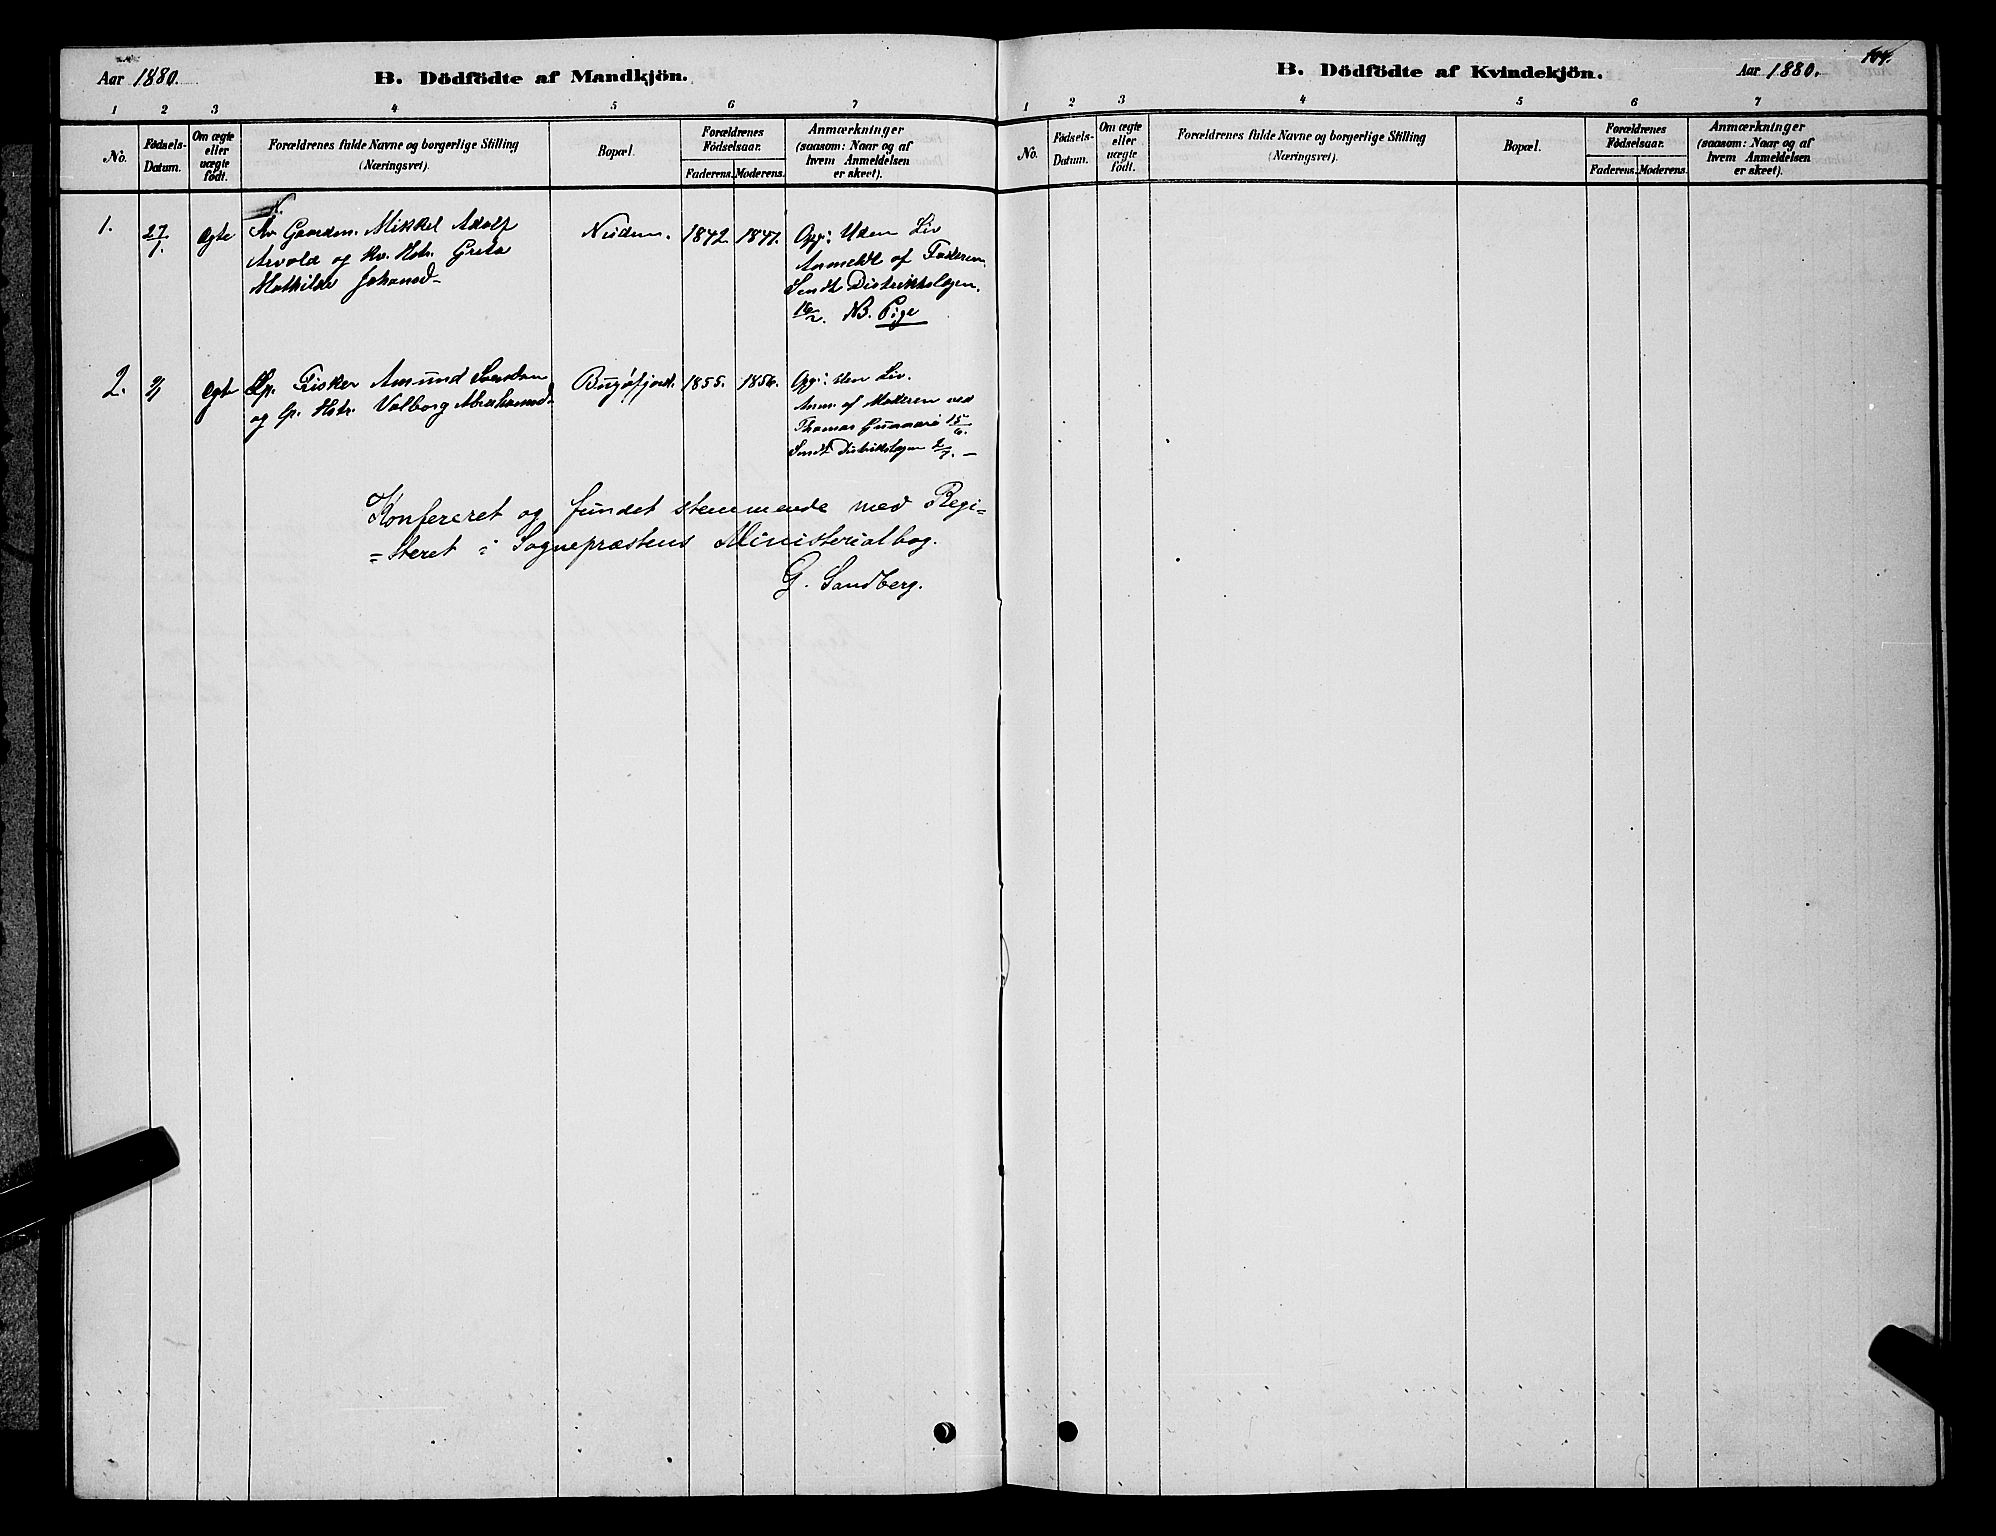 Aar 1880.
B. Dödfödte af Mandkjön.
1 2 3 4 5 6 7
No.
Födsels-Datum.
Om ægte eller uægte födt.
Forældrenes fulde Navne og borgerlige Stilling
(Næringsvei).
Bopæl.
Forældrenes Födselsaar.
Faderens. Moderens.
Anmærkninger
(saasom: Naar og af
hvem Anmeldelsen
er skeet).
1. 27/1. Ægte Gaardm. Mikkel Adolf Neiden. 1842. 1847. Opg: Uden Liv
Arvola og Kv. Hstr. Greta Anmeldt af Faderen.
Mathilde Johansd- Sendt Distriktslægen.
16/2. NB. Pige
2. Ægte Lp. Fisker Amund Svendsen Bugöfjord. 1855. 1856. Opg: uden Liv.
og Hstr. Valborg Abrahamsd. Anm. af Moderen ved
Thomas 15/6.
Sendt Distriktslægen 2/7. –
Konfereret og fundet stemmende med Regi-
=steret i Sognepræstens Ministerialbog.
G. Sandberg.
104.
B. Dödfödte af Kvindekjön.
Aar 1880.
1 2 3 4 5 6 7
No.
Födsels-Datum.
Om ægte eller uægte födt.
Forældrenes fulde Navne og borgerlige Stilling
(Næringsvei).
Bopæl.
Forældrenes Födselsaar.
Faderens. Moderens.
Anmærkninger
(saasom: Naar og af
hvem Anmeldelsen
er skeet).